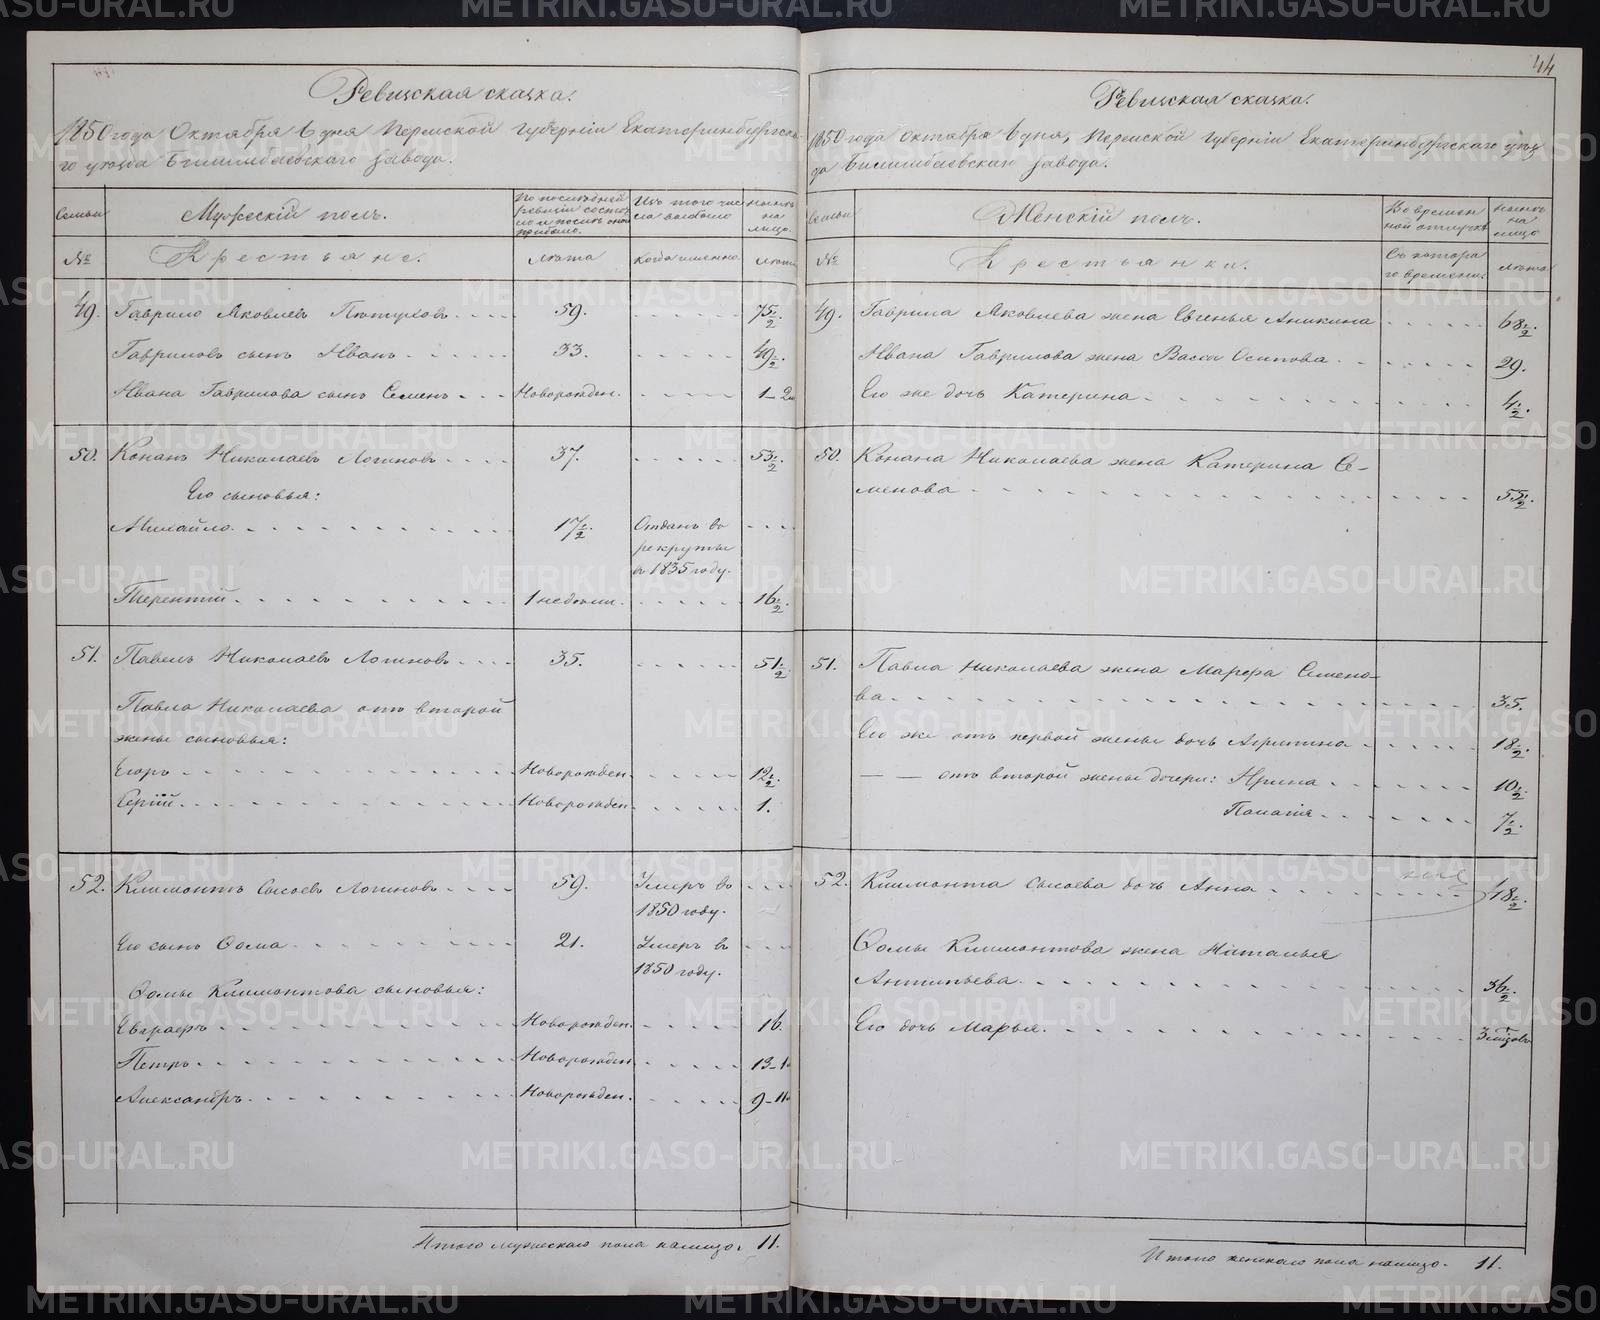 44
Ревизская сказка.
1850 года Октября 6 дня Пермской губерніи Екатеринбургска-
го уѣзда Билимбаевскаго завода.
Семьи
Мужескій полъ.
По послѣдней ревизіи состояло и послѣ оной прибыло.
Изъ того числа выбыло
Нынѣ на лицо.
№
Крестьяне.
Лѣта
Когда именно.
Лѣта
49. Гаврило Яковлевъ Пѣтуховъ 59. 75 1/2.
Гавриловъ сынъ Иванъ 33. 49 1/2.
Ивана Гаврилова сынъ Семенъ Новорожден. 1-2
50. Конанъ Николаевъ Логиновъ 37. 53 1/2.
Его сыновья:
Михайло 17 1/2. Отданъ въ
рекруты
въ 1835 году.
Терентій 1 недѣли. 16 1/2.
51. Павелъ Николаевъ Логиновъ 35. 51 1/2
Павла Николаева отъ второй
жены сыновья:
Егоръ Новорожден. 12 1/2.
Сергій Новорожден 1.
52. Климонтъ Сысоевъ Логиновъ 59. Умеръ въ
1850 году.
Его сынъ Ѳома 21. Умеръ въ
1850 году.
Ѳомы Климонтова сыновья:
Евграфъ Новорожден. 16.
Петръ Новорожден 13-
Александръ Новорожден. 9-11
Итого мужескаго пола налицо. 11.
Ревизская сказка.
1850 года Октября 6 дня, Пермской губерніи Екатеринбургскаго уѣз
да Билимбаевскаго завода.
Семьи
Женскій полъ.
Во времен
ной отлучкѣ
Нынѣ
на
лицо
№
Крестьянки.
Съ котора
го времени.
Лѣта
49. Гаврила Яковлева жена Евгенья Аникина 68 1/2.
Ивана Гаврилова жена Васса Осипова 29.
Его же дочь Катерина 4 1/2.
50. Конана Николаева жена Катерина Се-
менова 55 1/2.
51. Павла Николаева жена Марфа Семено-
ва 35.
Его же отъ первой жены дочь Агрипина 18 1/2.
— — отъ второй жены дочери: Ирина 10 1/2.
Палагія 7 1/2.
52. Климонта Сысоева дочь Анна 18 1/2.
Ѳомы Климонтова жена Наталья
Антипьева 36 1/2.
Его дочь Марья. 3 мѣсяцовъ
Итого женскаго пола налицо. 11.
METRIKI.GASO-URAL.RU